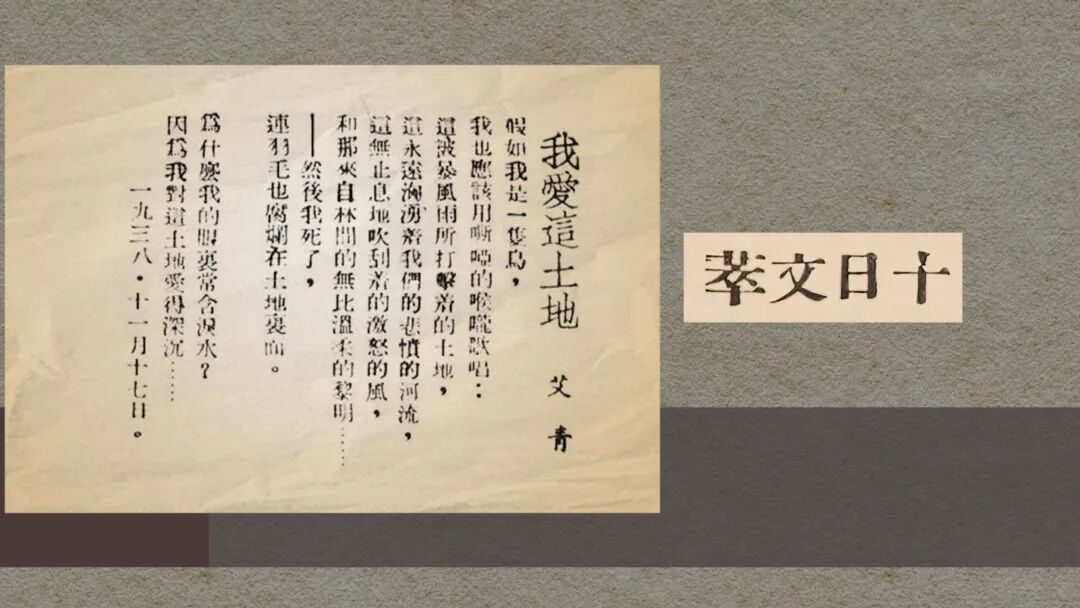 我愛這土地
艾青
假如我是一隻鳥，
我也應該用嘶啞的喉嚨歌唱：
這被暴風雨所打擊着的土地，
這永遠洶湧着我們的悲憤的河流，
這無止息地吹刮着的激怒的風，
和那來自林間的無比溫柔的黎明……
——然後我死了，
連羽毛也腐爛在土地裏面。
爲什麼我的眼裏常含淚水？
因爲我對這土地愛得深沉……
一九三八·十一月十七日。
萃文日十